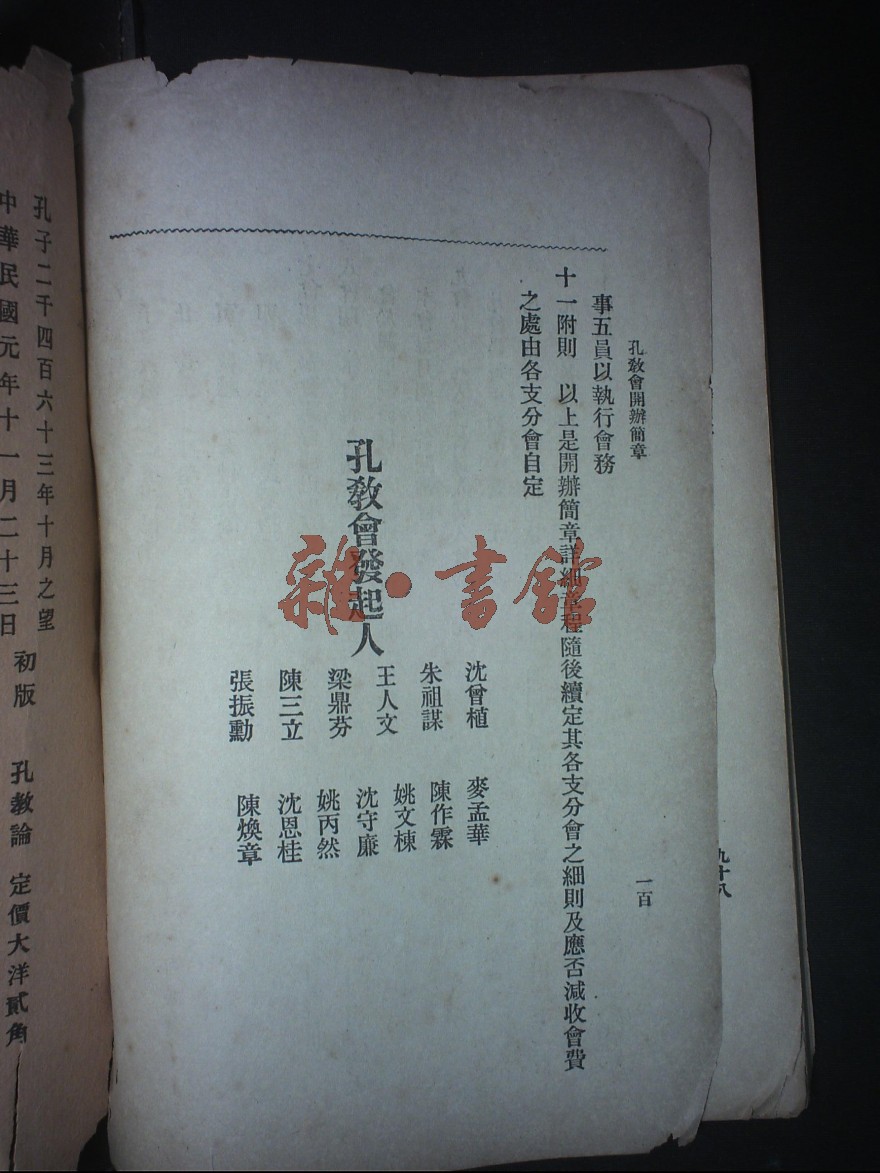 孔教會開辦簡章
一百
事五員以執行會務
十一附則　以上是開辦簡章詳細章程隨後續定其各支分會之細則及應否減收會費
之處由各支分會自定
孔教會發起人
沈曾植　麥孟華
朱祖謀　陳作霖
王人文　姚文棟
梁鼎芬　沈守廉
陳三立　姚丙然
張振勳　沈恩桂
陳煥章
九十八
孔子二千四百六十三年十月之望
中華民國元年十一月二十三日
初版
孔教論　定價大洋貳角
雜·書館